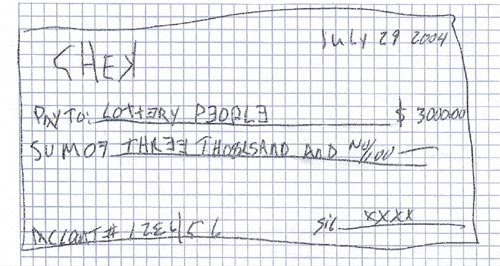 July 29 2004
CHEK
PAY TO: LOTTERY PEOPLE $ 3000.00
SUM OF THREE THOUSAND AND NO/100
ACCOUNT # SIG XXXX